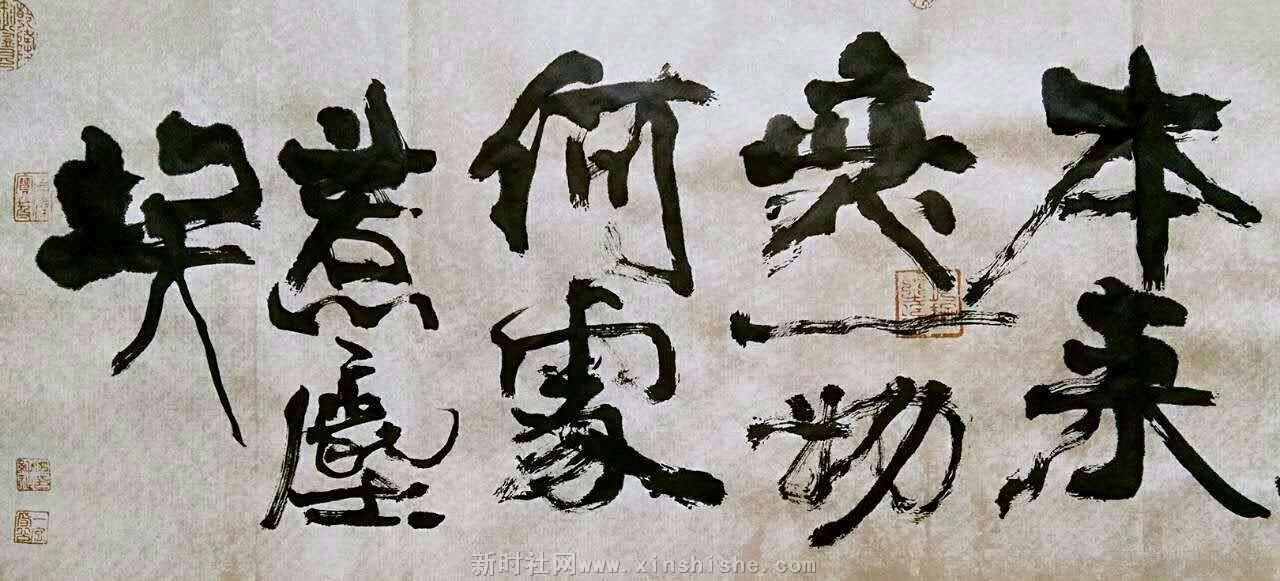 本来
無一物
何處
惹塵
埃
新时社网www.xinshishe.com